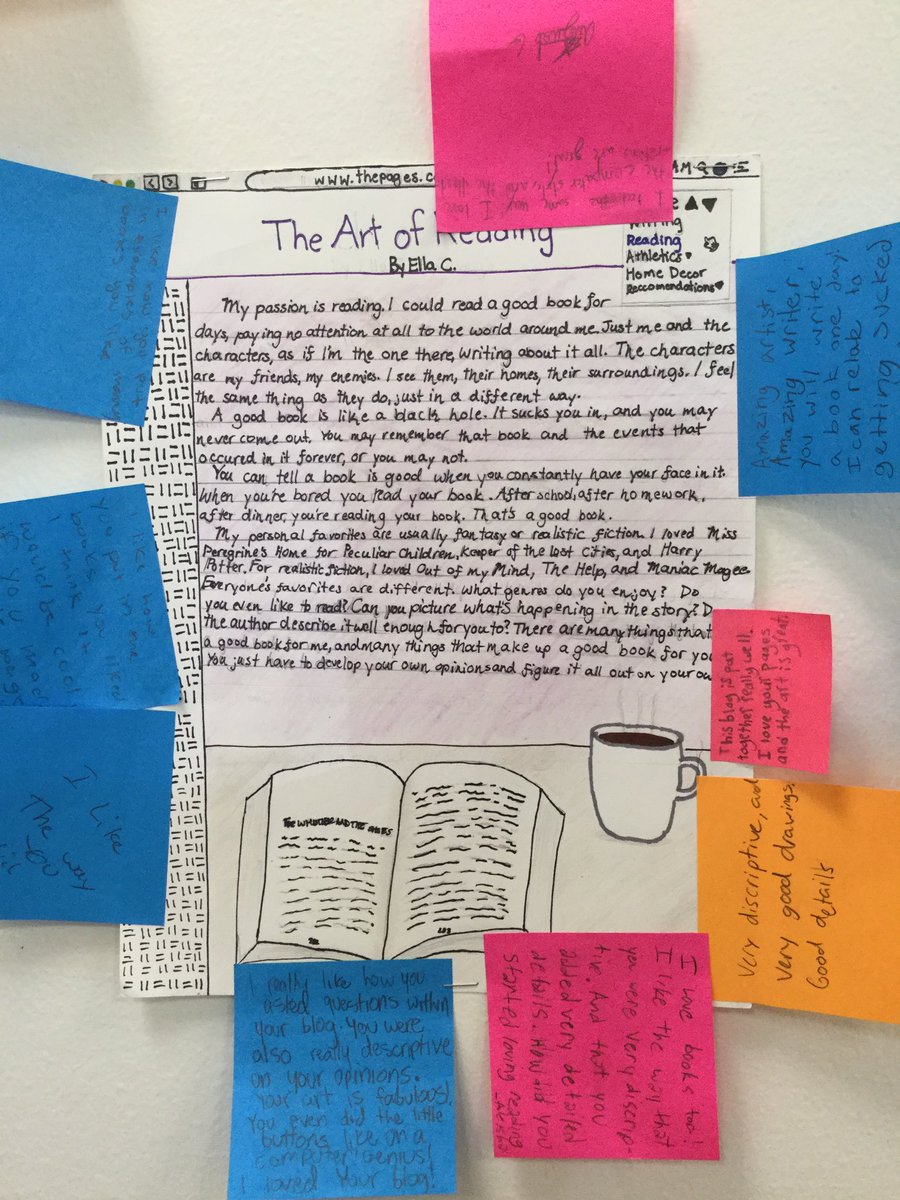 www.thepages.c
AM
The Art of Reading
By Ella C.
Writing
Reading
Athletics
Home Decor
Reccomendations
My passion is reading. I could read a good book for
days, paying no attention at all to the world around me. Just me and the
characters, as if I'm the one there, writing about it all. The characters
are my friends, my enemies. I see them, their homes, their surroundings. I feel
the same thing as they do, just in a different way.
A good book is like a black hole. It sucks you in, and you may
never come out. You may remember that book and the events that
occured in it forever, or you may not.
You can tell a book is good when you constantly have your face in it.
When you're bored you read your book. After school, after homework,
after dinner, you're reading your book. That's a good book.
My personal favorites are usually fantasy or realistic fiction. I loved Miss
Peregrine's Home for Peculiar Children, Keeper of the Lost Cities, and Harry
Potter. For realistic fiction, I loved Out of my Mind, The Help, and Maniac Magee.
Everyone's favorites are different. What genres do you enjoy? Do
you even like to read? Can you picture what's happening in the story? D
the author describe it well enough for you to? There are many things that
a good book for me, and many things that make up a good book for you
You just have to develop your own opinions and figure it all out on your ow
Amazing artist,
Amazing writer,
you will write
a book one day.
I can relate to
getting sucked
This blog is put
together really well.
I love your pages
and the art is great.
Very discriptive, and
very good drawings.
Good details
I love books too!
I like the way that
you were very discrip-
tive. And that you
added very detailed
details. How did you
started loving reading
I really like how you
asked questions within
your blog. You were
also really descriptive
on your opinions.
Your art is fabulous!
You even did the little
buttons like on a
computer genius!
I loved your blog!
I like
The way